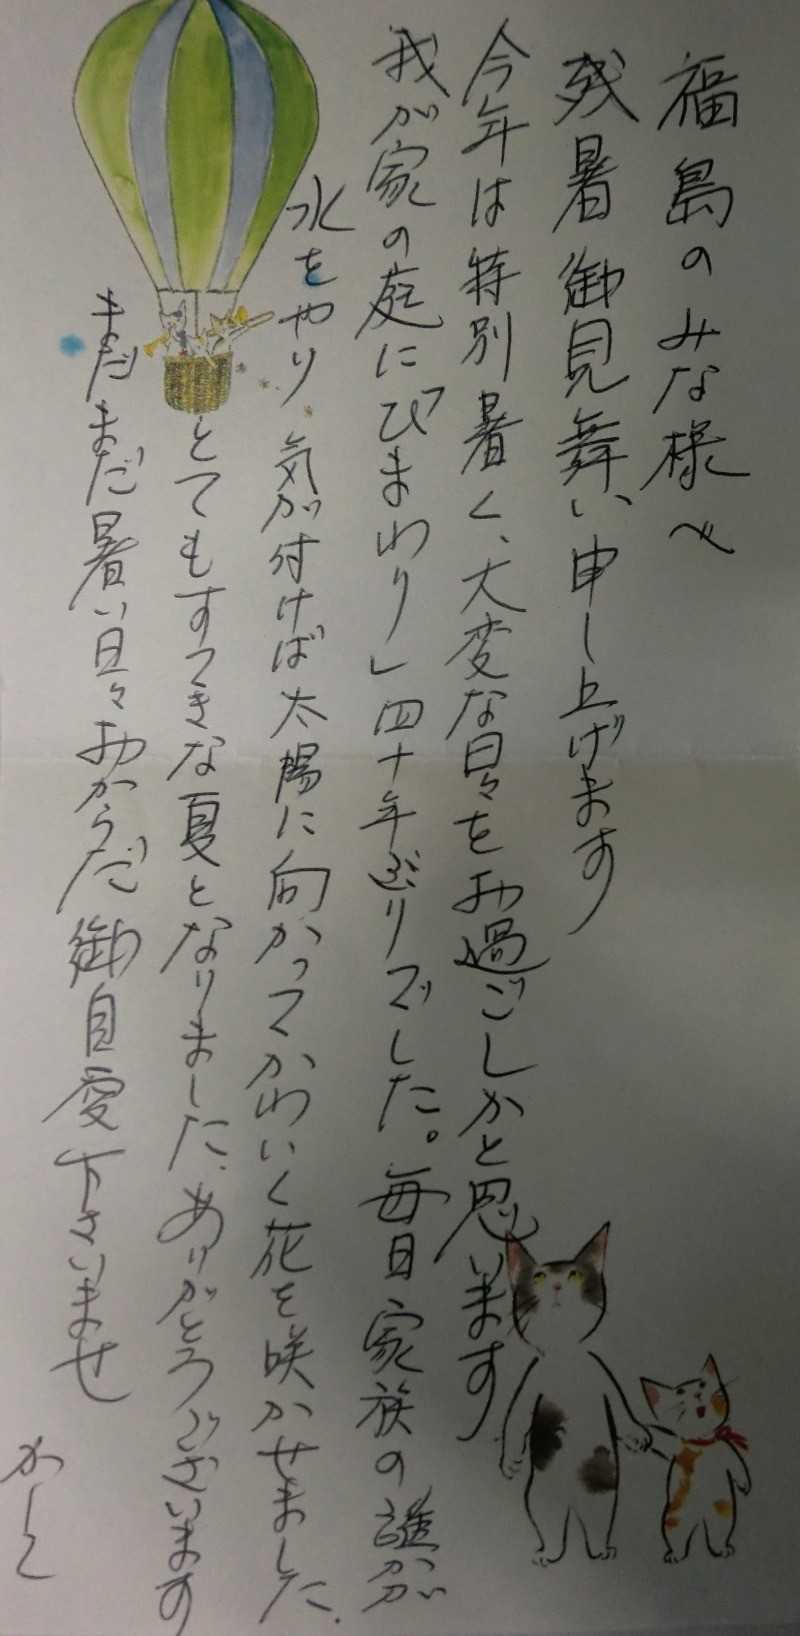 福島のみな様へ
残暑御見舞い申し上げます
今年は特別暑く、大変な日々をお過ごしかと思います
我が家の庭に「ひまわり」四十年ぶりでした。毎日家族の誰かが
水をやり 気が付けば太陽に向かってかわいく花を咲かせました。
とてもすてきな夏となりました。ありがとうございます
まだまだ暑い日々おからだ御自愛下さいませ
かしこ